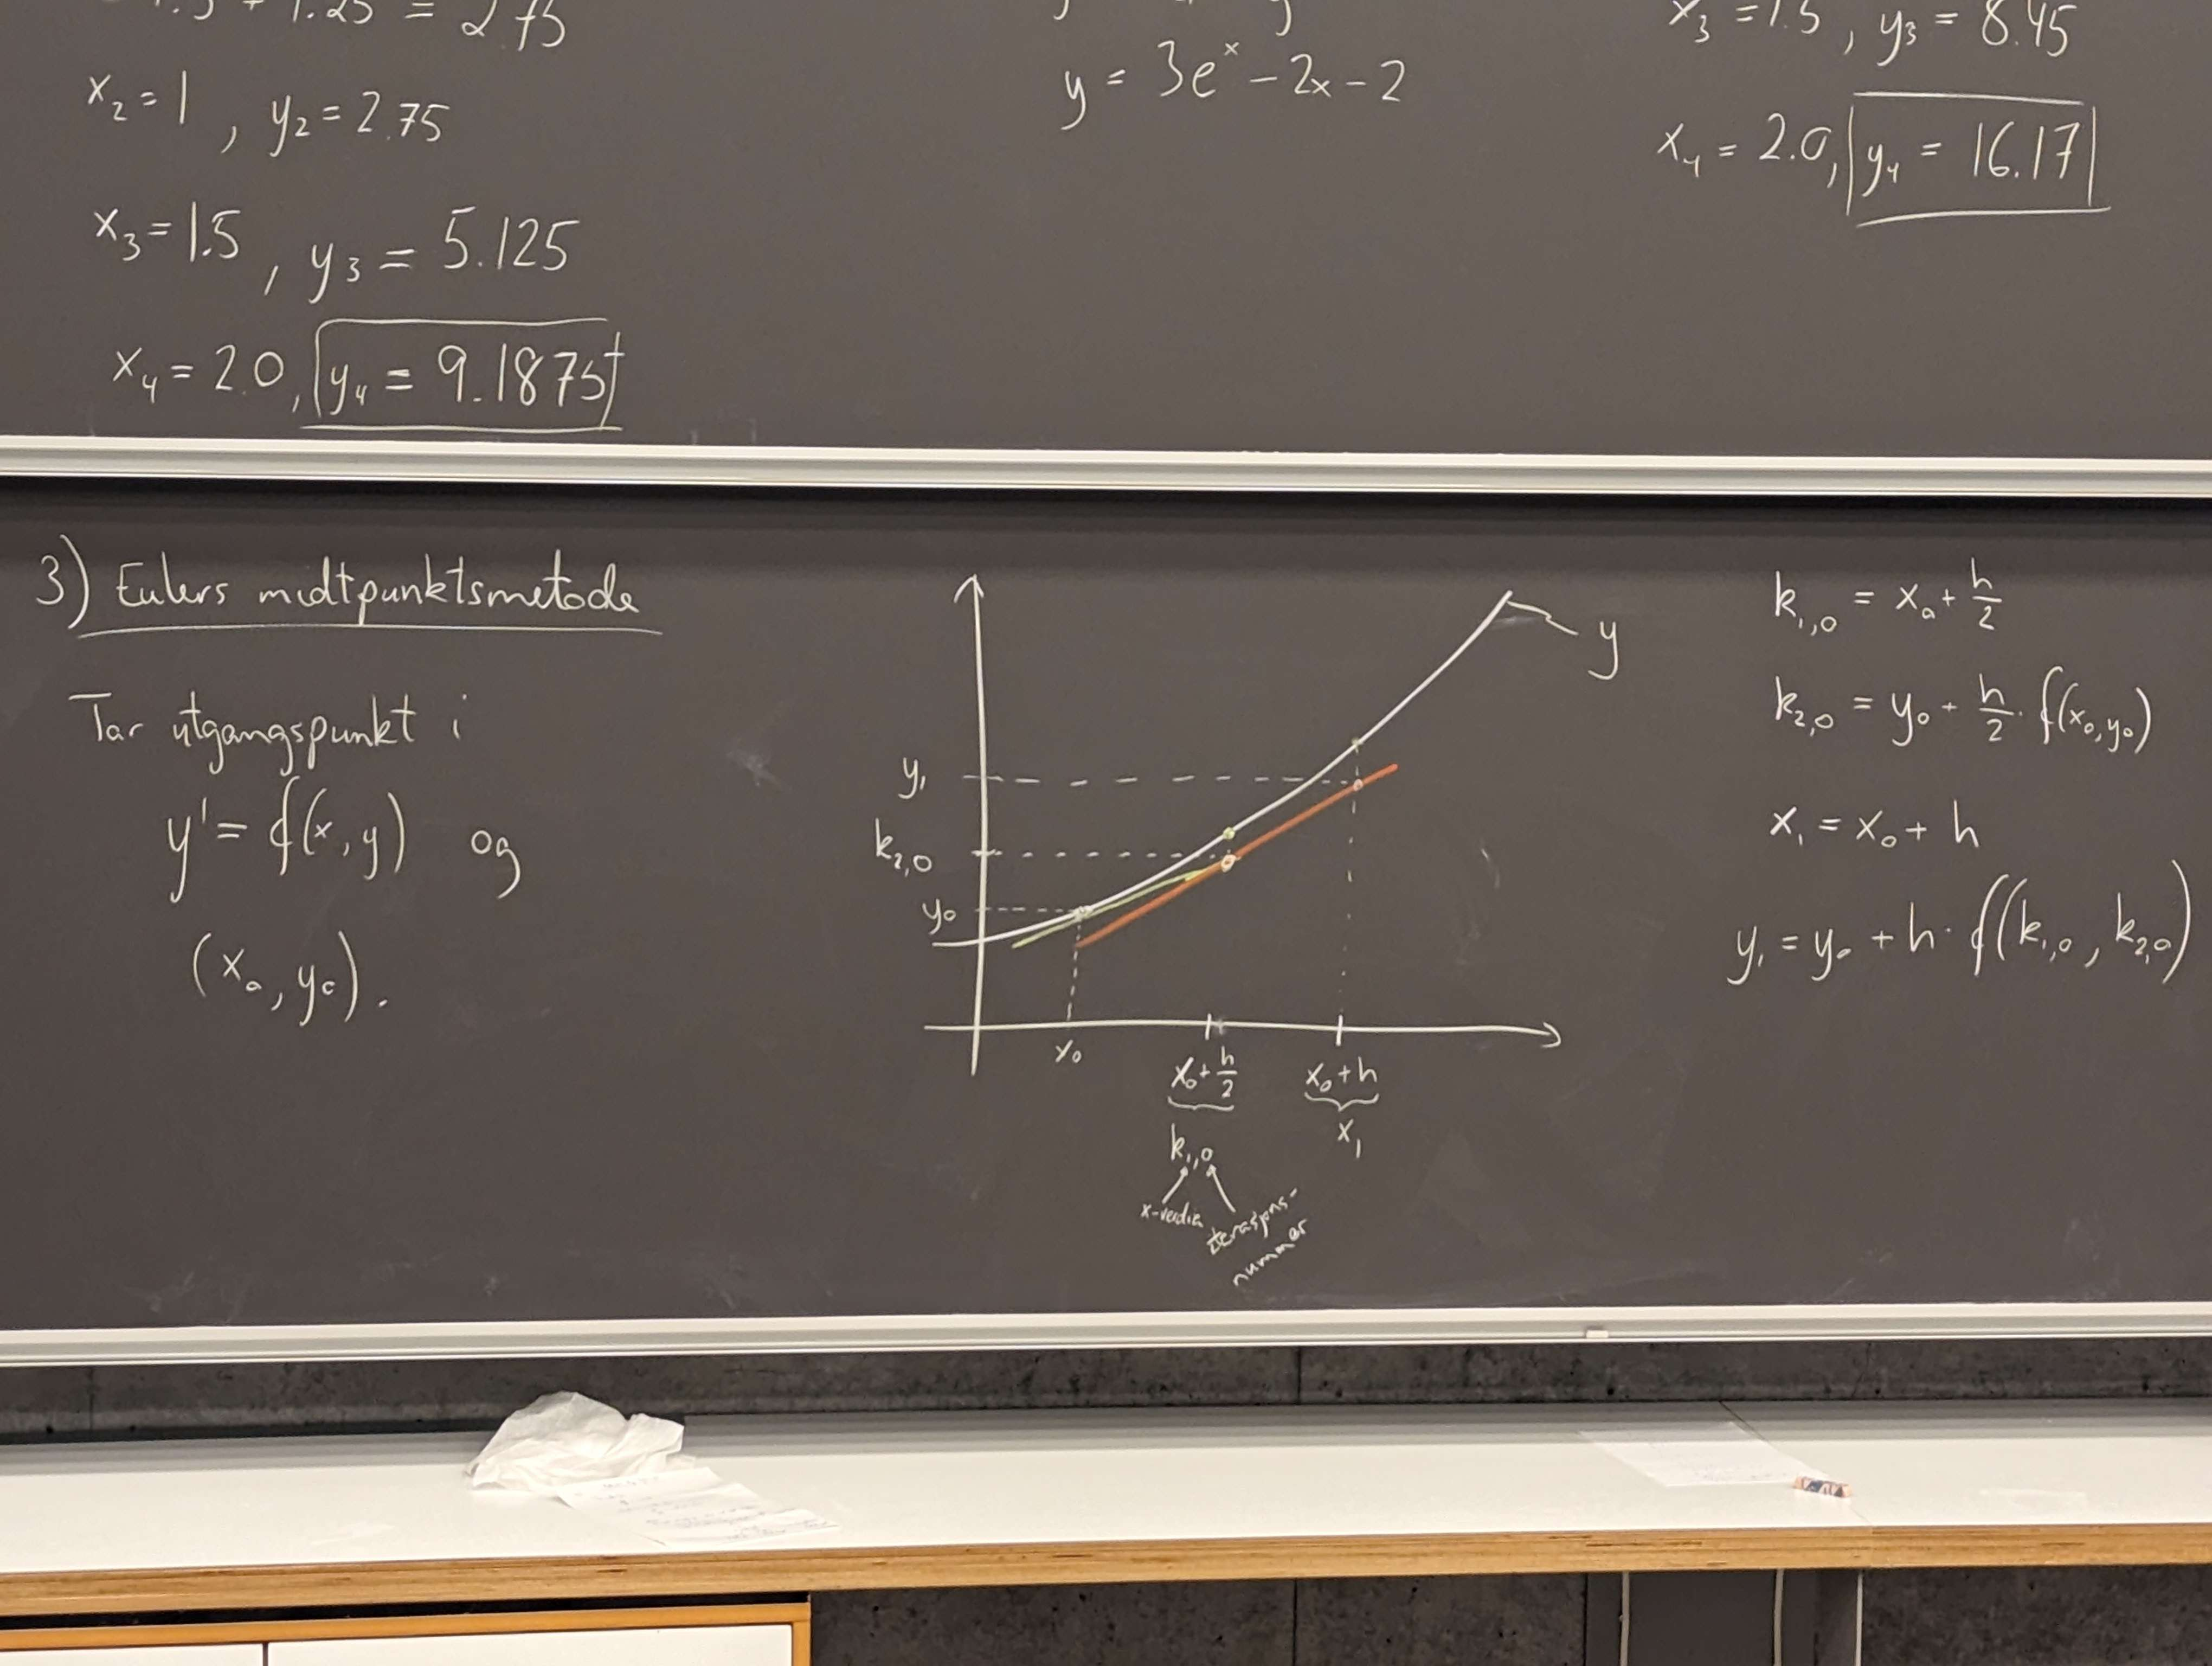 1.25 = 2.75
x₂ = 1 , y₂ = 2.75
x₃ = 1.5 , y₃ = 5.125
x₄ = 2.0 , y₄ = 9.1875
y = 3eˣ - 2x - 2
x₃ = 1.5 , y₃ = 8.45
x₄ = 2.0, y₄ = 16.17
3) Eulers midtpunktsmetode
Tar utgangspunkt i
y' = f(x, y) og
(x₀, y₀).
y
y₁
k₂,₀
y₀
x₀
x₀ + h/2
x₀ + h
k₁,₀
x₁
x-verdi
iterasjons-
nummer
k₁,₀ = x₀ + h/2
k₂,₀ = y₀ + h/2 · f(x₀, y₀)
x₁ = x₀ + h
y₁ = y₀ + h · f(k₁,₀ , k₂,₀)